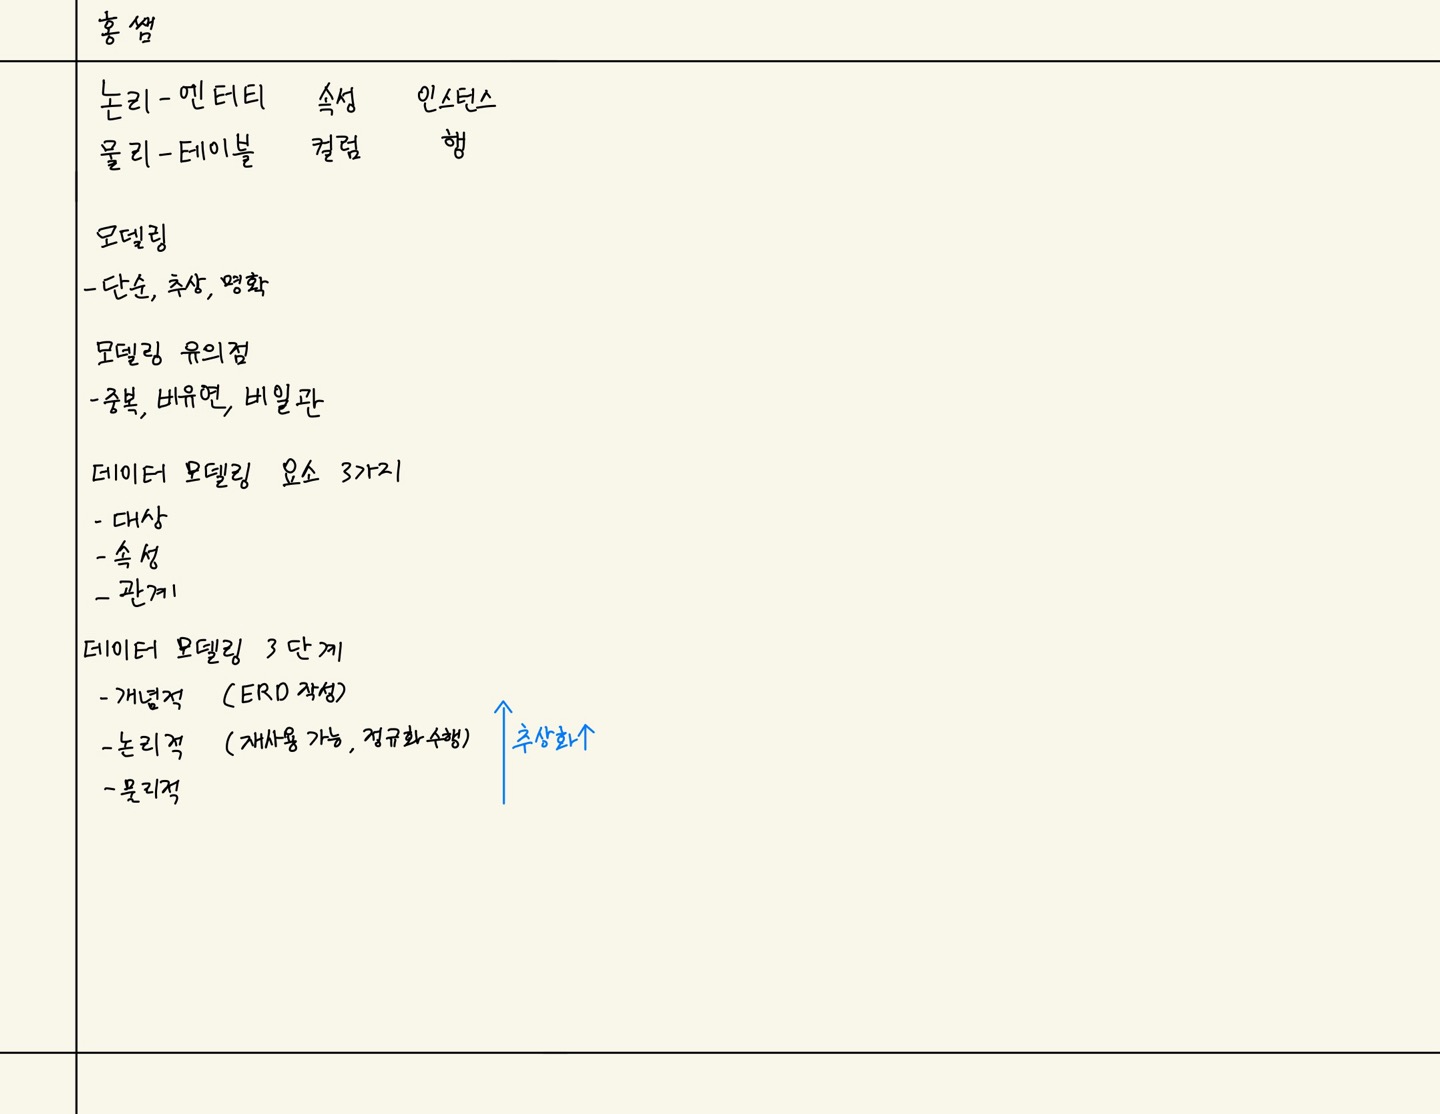 홍쌤
논리-엔터티 속성 인스턴스
물리-테이블 컬럼 행
모델링
-단순, 추상, 명확
모델링 유의점
-중복, 비유연, 비일관
데이터 모델링 요소 3가지
- 대상
- 속성
- 관계
데이터 모델링 3단계
- 개념적 (ERD 작성)
- 논리적 (재사용 가능, 정규화 수행)
추상화↑
- 물리적